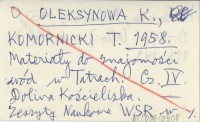 OLEKSYNOWA K.,
KOMORNICKI T. 1958.
Materiały do znajomości
wód w Tatrach. Cz. IV
Dolina Kościeliska.
Zeszyty Naukowe WSR w